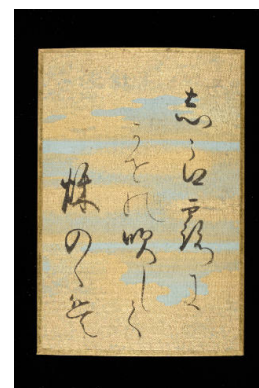 志ら露に
かせの吹しく
秋のゝは